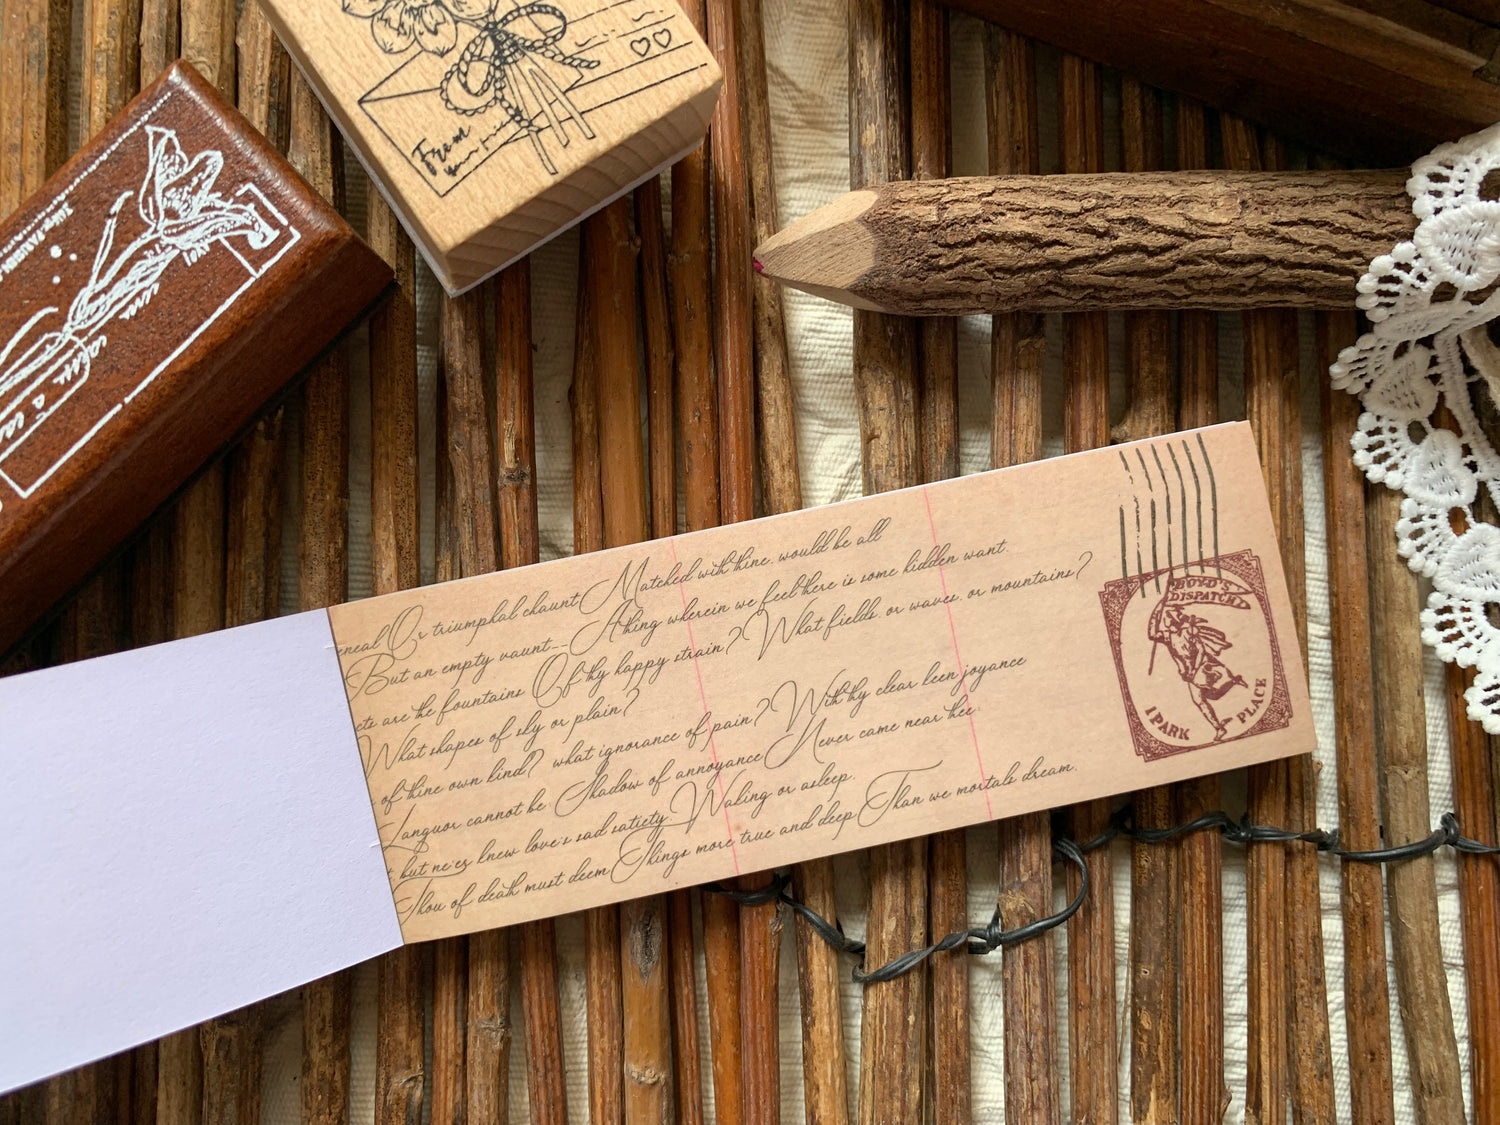 From
eneal Or triumphal chaunt Matched with thine, would be all
But an empty vaunt-- A thing wherein we feel there is some hidden want.
cts are the fountains Of thy happy strain? What fields, or waves, or mountains?
What shapes of sky or plain?
of thine own kind? what ignorance of pain? With thy clear keen joyance
Languor cannot be Shadow of annoyance Never came near thee:
, but ne'er knew love's sad satiety. Waking or asleep,
Thou of death must deem Things more true and deep Than we mortals dream,
BOYD'S
DISPATCH
1 PARK PLACE